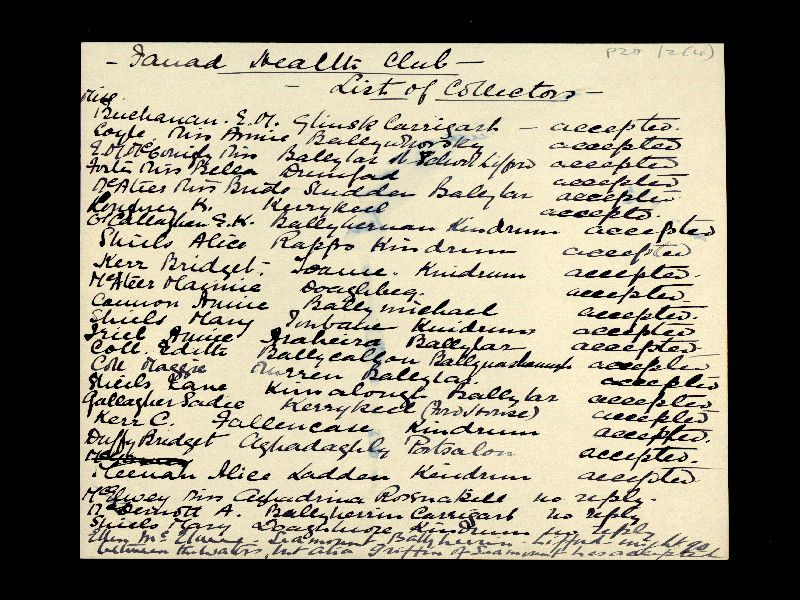 - Fanad Health Club -
- List of Collectors -
Buchanan. E.M. Glinsk Carrigart - accepted.
Coyle Miss Annie Ballyhorsky accepted
E.M. McGonigly Miss Ballylar School Lifford accepted
Forte Miss Bella Drumfad accepted
McAteer Miss Bride Sludden Ballylar accepted.
K. Kerrykeel accepted.
O'Callaghan E.K. Ballyhernan Kindrum accepted
Shiels Alice Rappo Kindrum accepted
Kerr Bridget. Kindrum accepted.
McAteer Mamie Doaghbeg. accepted.
Cannon Annie Ballymichael accepted.
Shiels Mary Tonbane Kindrum accepted
Friel Annie Araheira Ballylar accepted.
Coll Edith Ballycallon accepted
Coll Maggie Murren Ballylar. accepted
Shiels Jane Kinnalough Ballylar accepted
Gallagher Sadie Kerrykeel accepted
Kerr C. Fallencase Kindrum accepted.
Duffy Bridget Aghadaghly Portsalon accepted.
Heenan Alice Ladden Kindrum accepted
McElwey Miss Aghadrina Rosnakill no reply.
McDermott A. Ballyherrin Carrigart no reply
Shiels Mary Doaghmore Kindrum no reply
Ellen McElwee - Seamount Ballyherrin - Lifford might go
between the waters, but Alia Griffin of Seamount has accepted